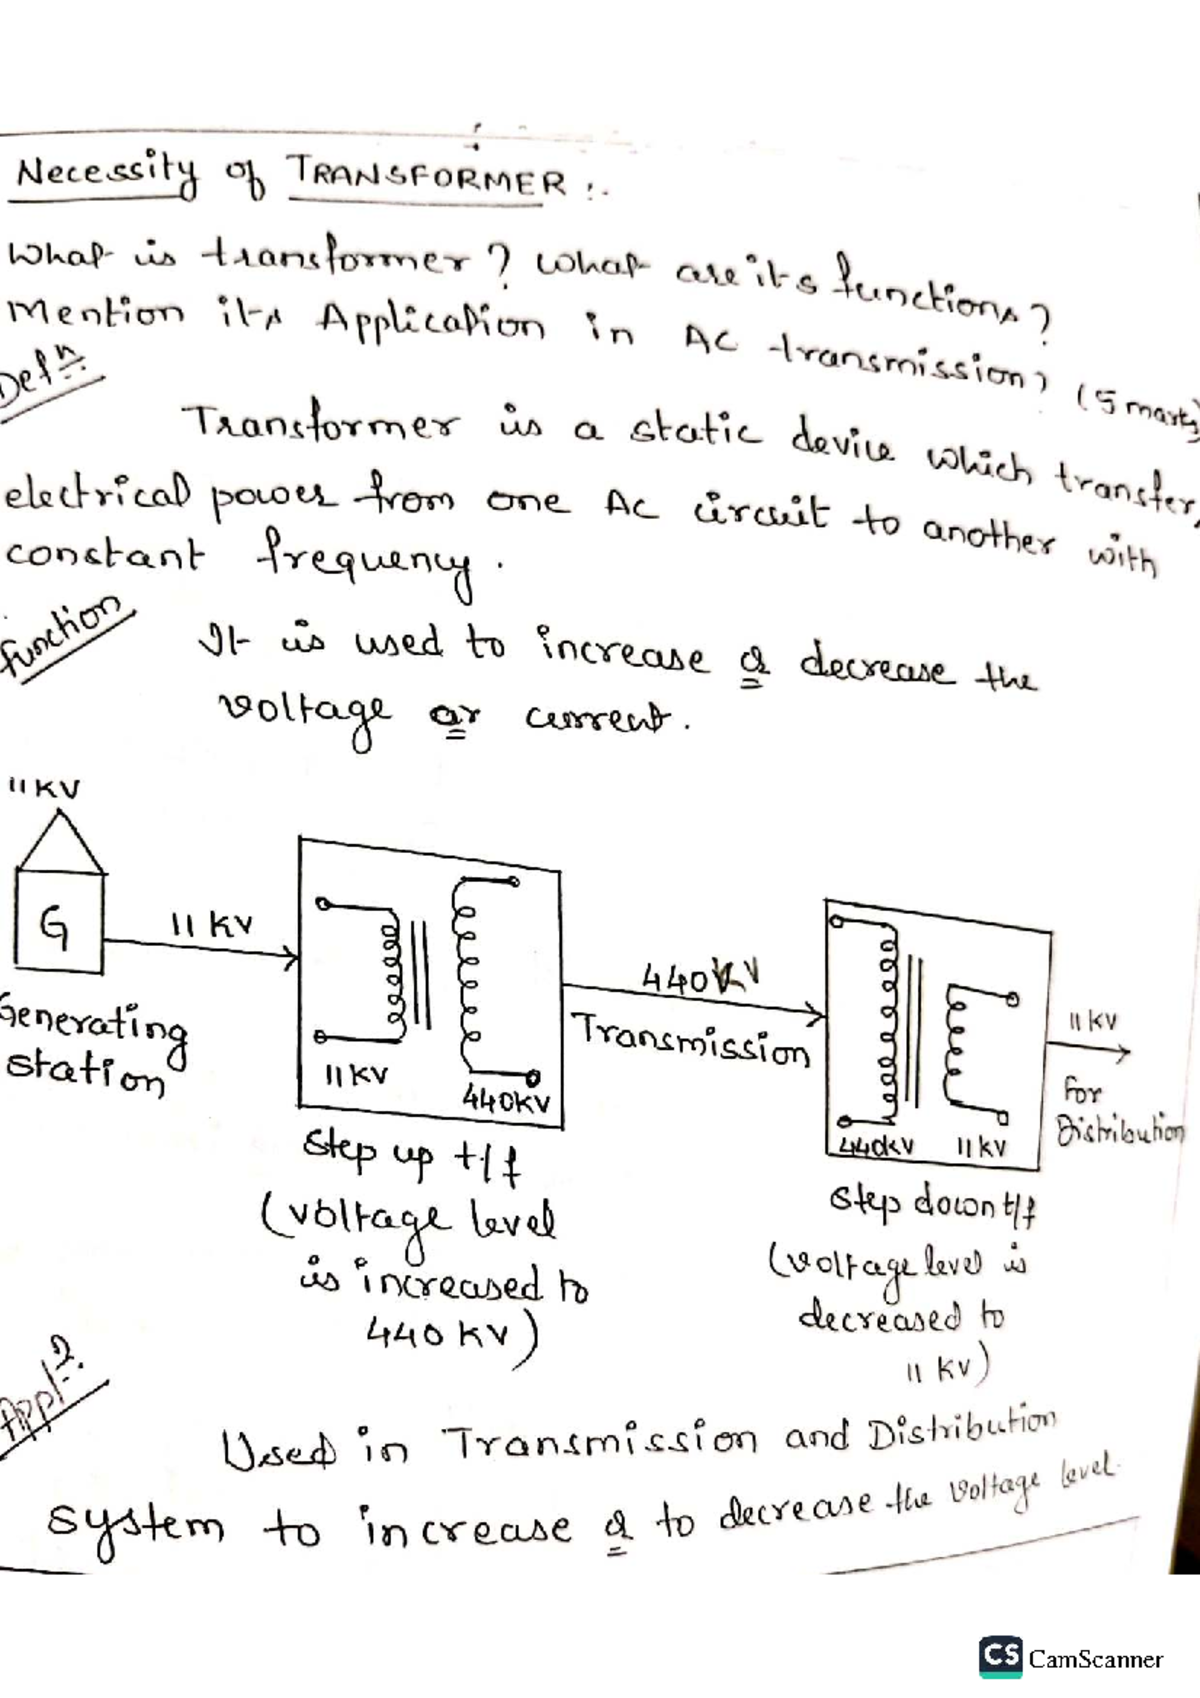 Necessity of TRANSFORMER :-
What is transformer? What are its functions?
Mention its Application in AC transmission? (5 marks)
Defn:
Transformer is a static device which transfer
electrical power from one AC circuit to another with
constant frequency.
function
It is used to increase or decrease the
voltage or current.
11 KV
G
11 KV
Generating
station
11 KV
440KV
Step up t/f
(voltage level
is increased to
440 KV)
440KV
Transmission
440KV
11 KV
Step down t/f
(voltage level is
decreased to
11 KV)
11 KV
For
Distribution
Appl:
Used in Transmission and Distribution
system to increase or to decrease the voltage level.
CS CamScanner